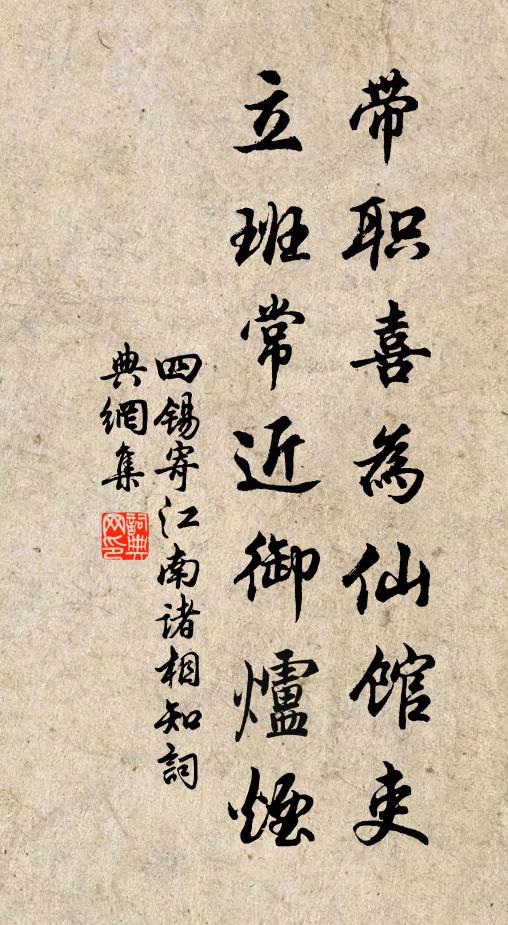 带职喜為仙馆吏
立班常近御爐煙
四锡寄江南诸相知詞
典網集
詞典网印